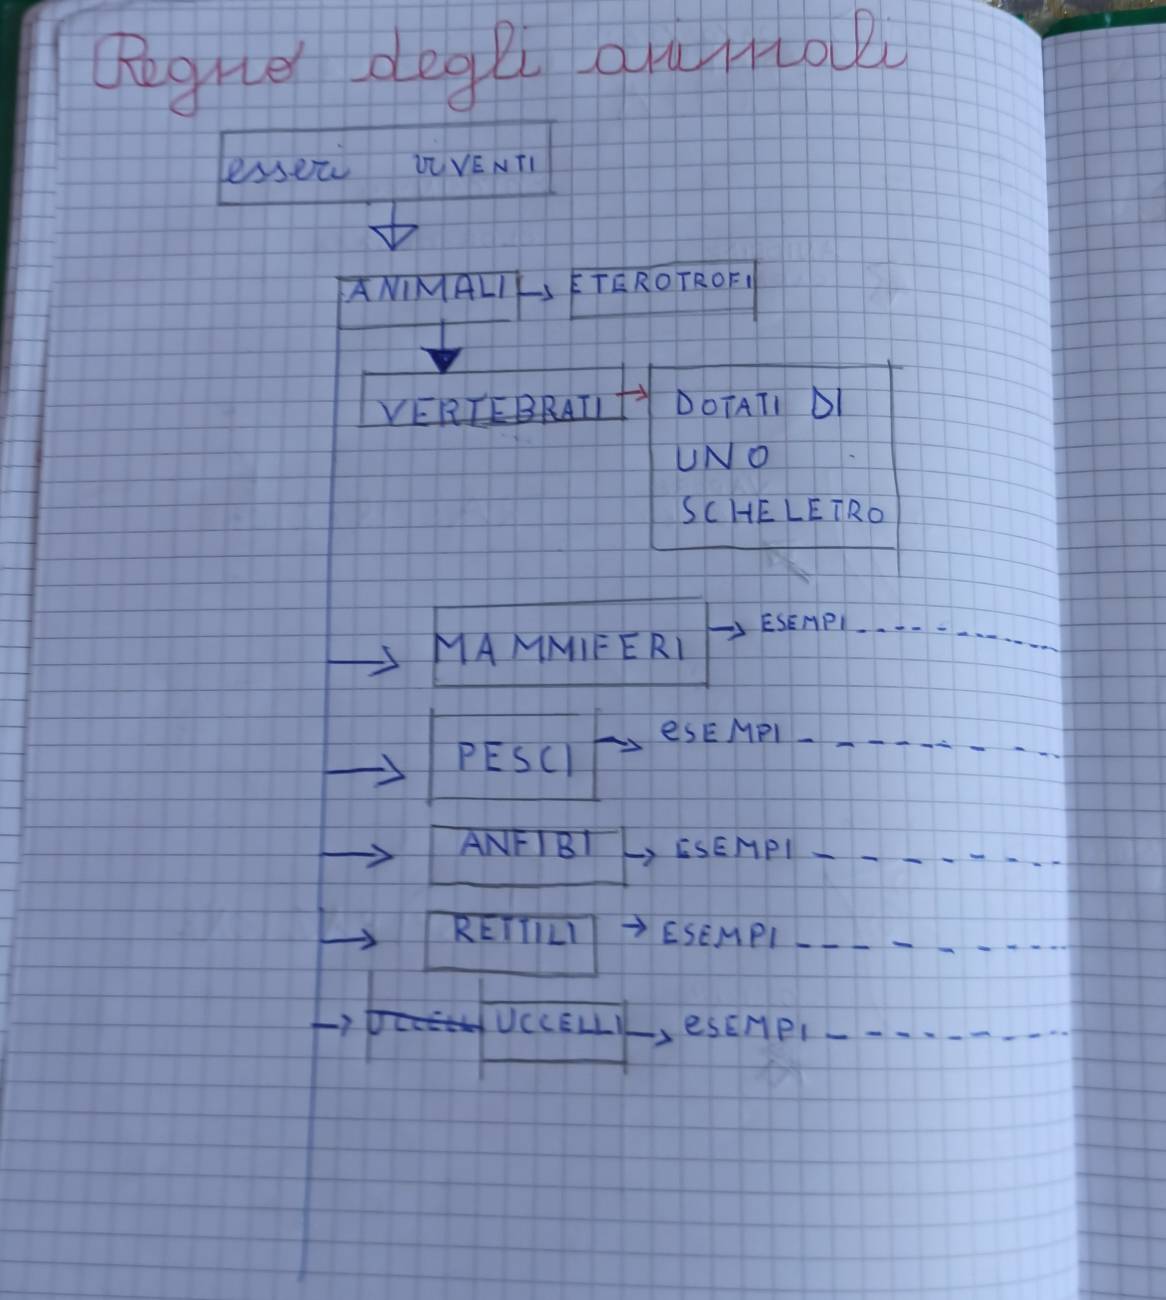 Regno degli animali
esseri VIVENTI
ANIMALI → ETEROTROFI
VERTEBRATI → DOTATI DI
UNO
SCHELETRO
MAMMIFERI → ESEMPI
PESCI → eSEMPI
ANFIBI → ESEMPI
RETTILI → ESEMPI
UCCELLI UCCELLI → eSEMPI